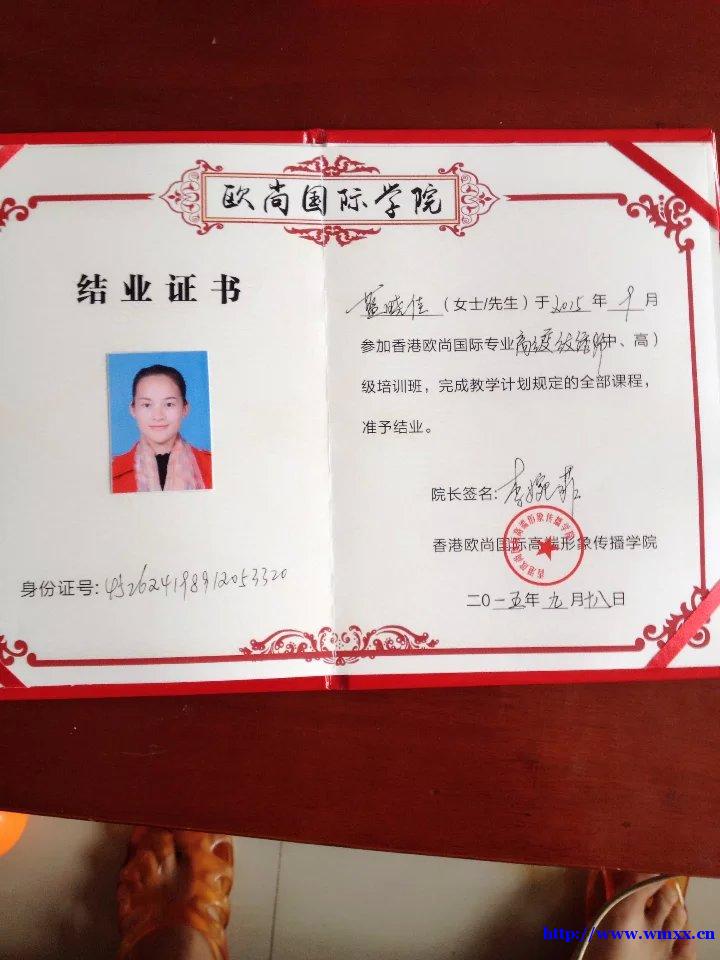 欧尚国际学院
结业证书
蓝晓佳（女士/先生）于2015年 月
参加香港欧尚国际专业高级纹绣师中、高）
级培训班，完成教学计划规定的全部课程，
准予结业。
院长签名:
香港欧尚国际高端形象传播学院
香港欧尚国际高端形象传播学院
二0一五年九月十八日
身份证号: 452624198912053320
http://www.wmxx.cn